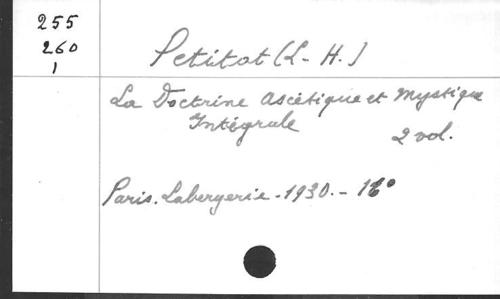 255
260
1
Petitot (L-H.)
La Doctrine Ascétique et Mystique
Intégrale
2 vol.
Paris. Labergerie - 1930. - 16°